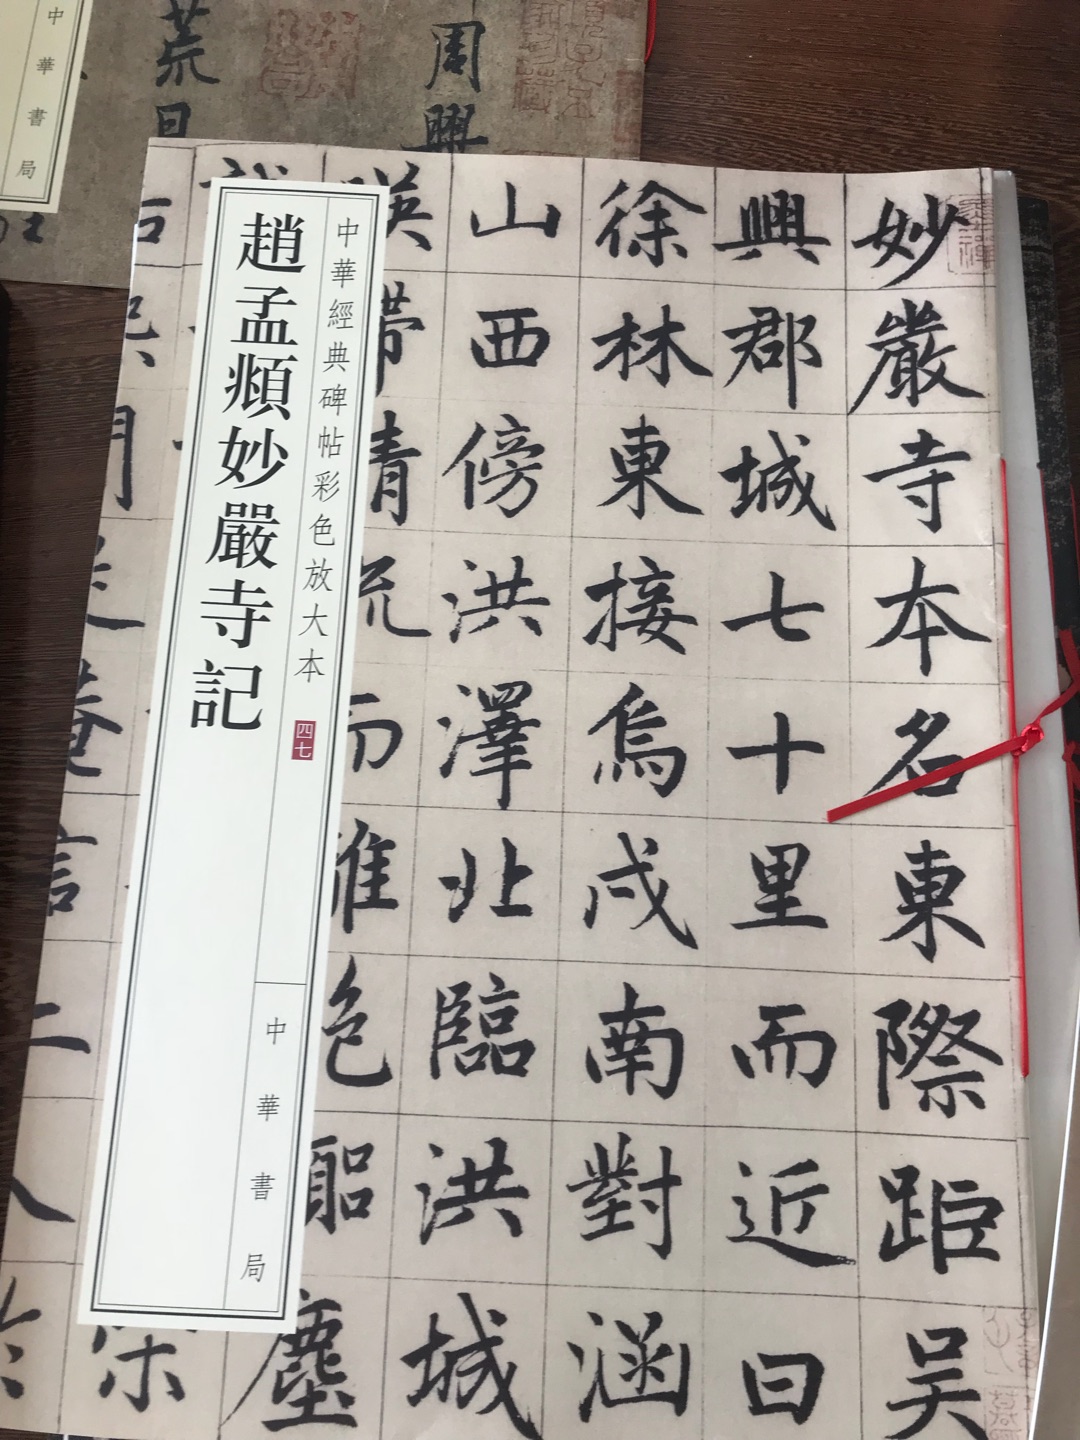 中華經典碑帖彩色放大本
四七
趙孟頫妙嚴寺記
中華書局
妙嚴寺本名東際距吳
興郡城七十里而近曰
徐林東接烏戍南對涵
山西傍洪澤北臨洪城
暎帶清流而離色囂塵
周興
荒日
中華書局